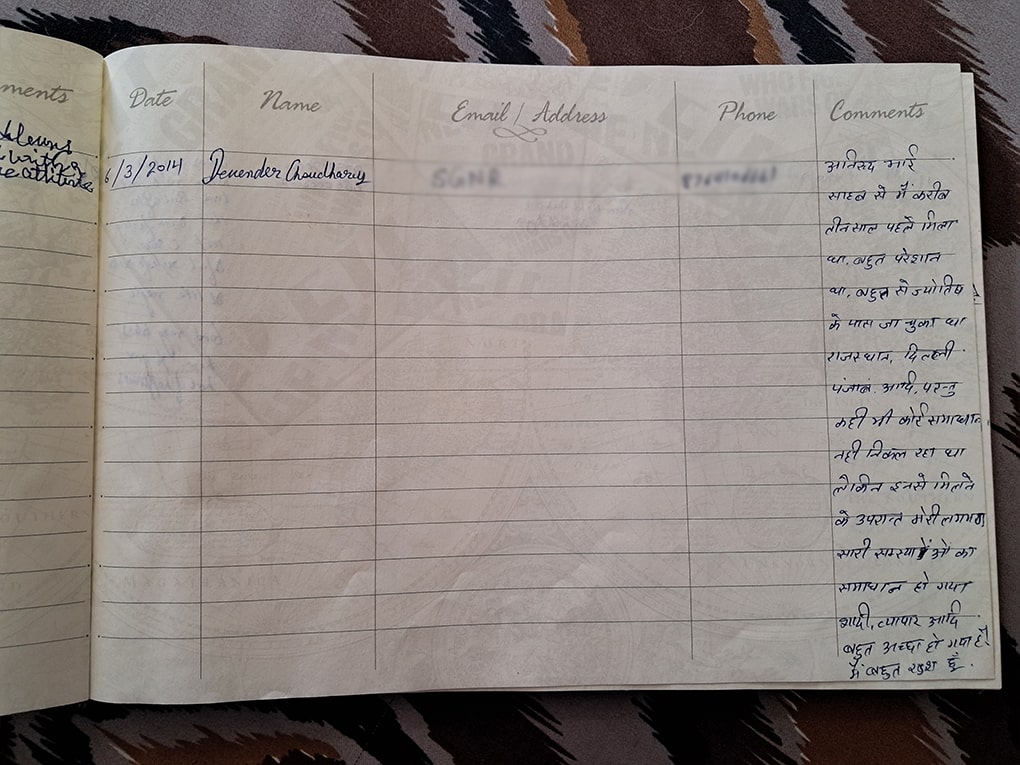 ments
Date Name Email / Address Phone Comments
6/3/2014 Devender Choudhary SGNR
भाई
साहब से मैं करीब
तीन साल पहले मिला
था, बहुत परेशान
था, बहुत से ज्योतिष
के पास जा चुका था
राजस्थान, दिल्ली
पंजाब आदि, परन्तु
कही भी कोई समाधान
नही निकल रहा था
लेकिन इनसे मिलने
के उपरान्त मेरी लगभग
सारी समस्याओं का
समाधान हो गया
शादी, व्यापार आदि
बहुत अच्छा हो गया है
मैं बहुत खुश हूँ.